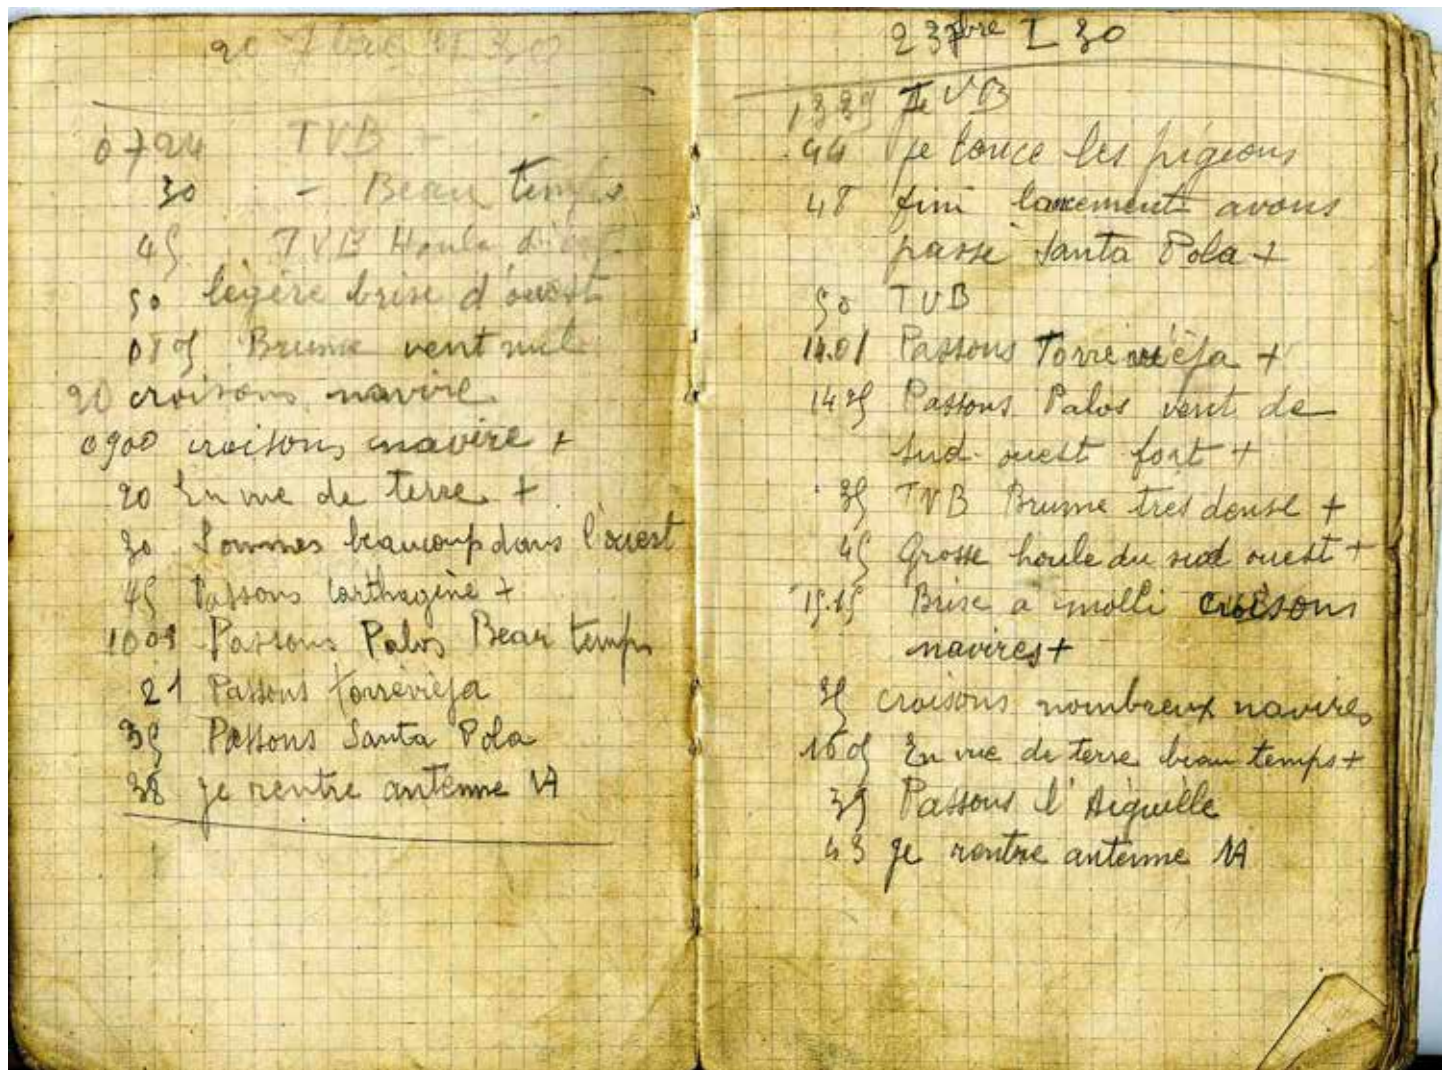 20 7bre
0724 TVB +
30 - Beau temps
45 TVB Houle
50 légère brise d'ouest
0805 Brume vent nul
20 croisons navire
0900 croisons navire +
20 En vue de terre +
30 Sommes beaucoup dans l'ouest
45 Passons Carthagène +
1008 Passons Palos Beau temps
21 Passons Torrevieja
35 Passons Santa Pola
38 je rentre antenne VA
23 7bre I 30
1335 TVB
44 je lance les pigeons
48 fini lancement avons
passé Santa Pola +
50 TVB
14.01 Passons Torrevièja +
1425 Passons Palos vent de
sud-ouest fort +
35 TVB Brume tres dense +
45 Grosse houle du sud ouest +
15.15 Brise a molli croisons
navires +
35 croisons nombreux navires
1605 En vue de terre beau temps +
35 Passons l'Aiguille
43 je rentre antenne VA